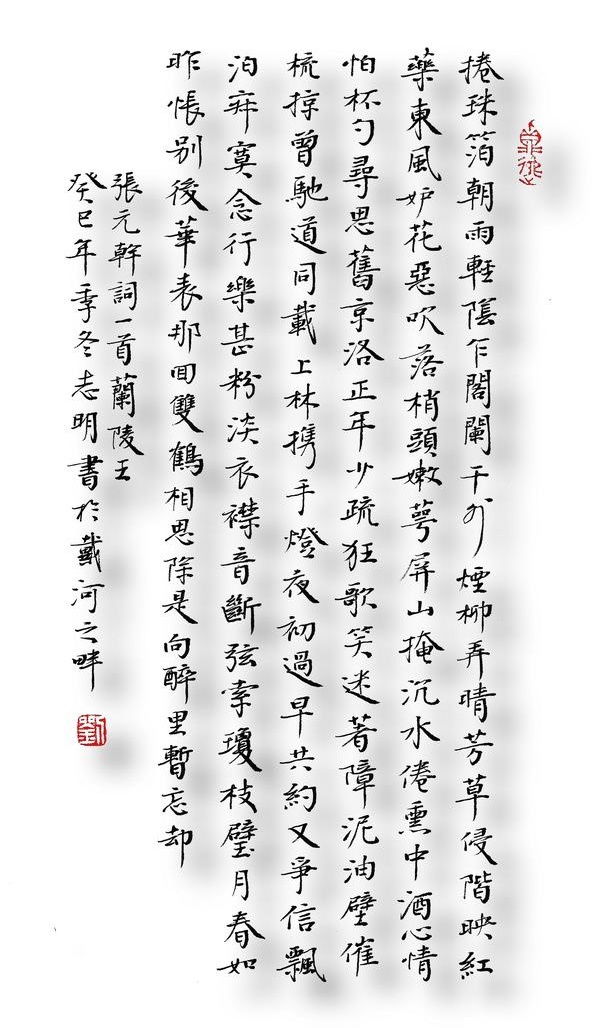 捲珠箔朝雨輕陰乍閣闌干外煙柳弄晴芳草侵階映紅
藥東風妒花惡吹落梢頭嫩萼屏山掩沉水倦熏中酒心情
怕杯勺尋思舊京洛正年少疏狂歌笑迷著障泥油壁催
梳掠曾馳道同載上林携手燈夜初過早共約又爭信飄
泊寂寞念行樂甚粉淡衣襟音斷弦索瓊枝璧月春如
昨悵別後華表那回雙鶴相思除是向醉里暫忘却
張元幹詞一首蘭陵王
癸巳年季冬志明書於戴河之畔
劉